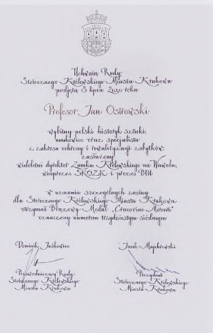 Uchwałą Rady
Stołecznego Królewskiego Miasta Krakowa
podjętą 8 lipca 2020 roku
Profesor Jan Ostrowski
wybitny polski historyk sztuki,
naukowiec oraz specjalista
z zakresu ochrony i rewaloryzacji zabytków
zasłużony
wieloletni dyrektor Zamku Królewskiego na Wawelu,
wiceprezes SKOZK i prezes PAU
w uznaniu szczególnych zasług
dla Stołecznego Królewskiego Miasta Krakowa
otrzymał Brązowy Medal "Cracoviae Merenti"
oznaczony numerem trzydziestym siódmym
Dominik Jaśkowiec
Jacek Majchrowski
Przewodniczący Rady
Stołecznego Królewskiego
Miasta Krakowa
Prezydent
Stołecznego Królewskiego
Miasta Krakowa